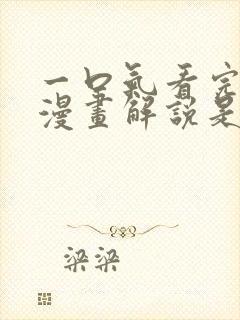 一口氣看完
漫畫解說是
梁梁